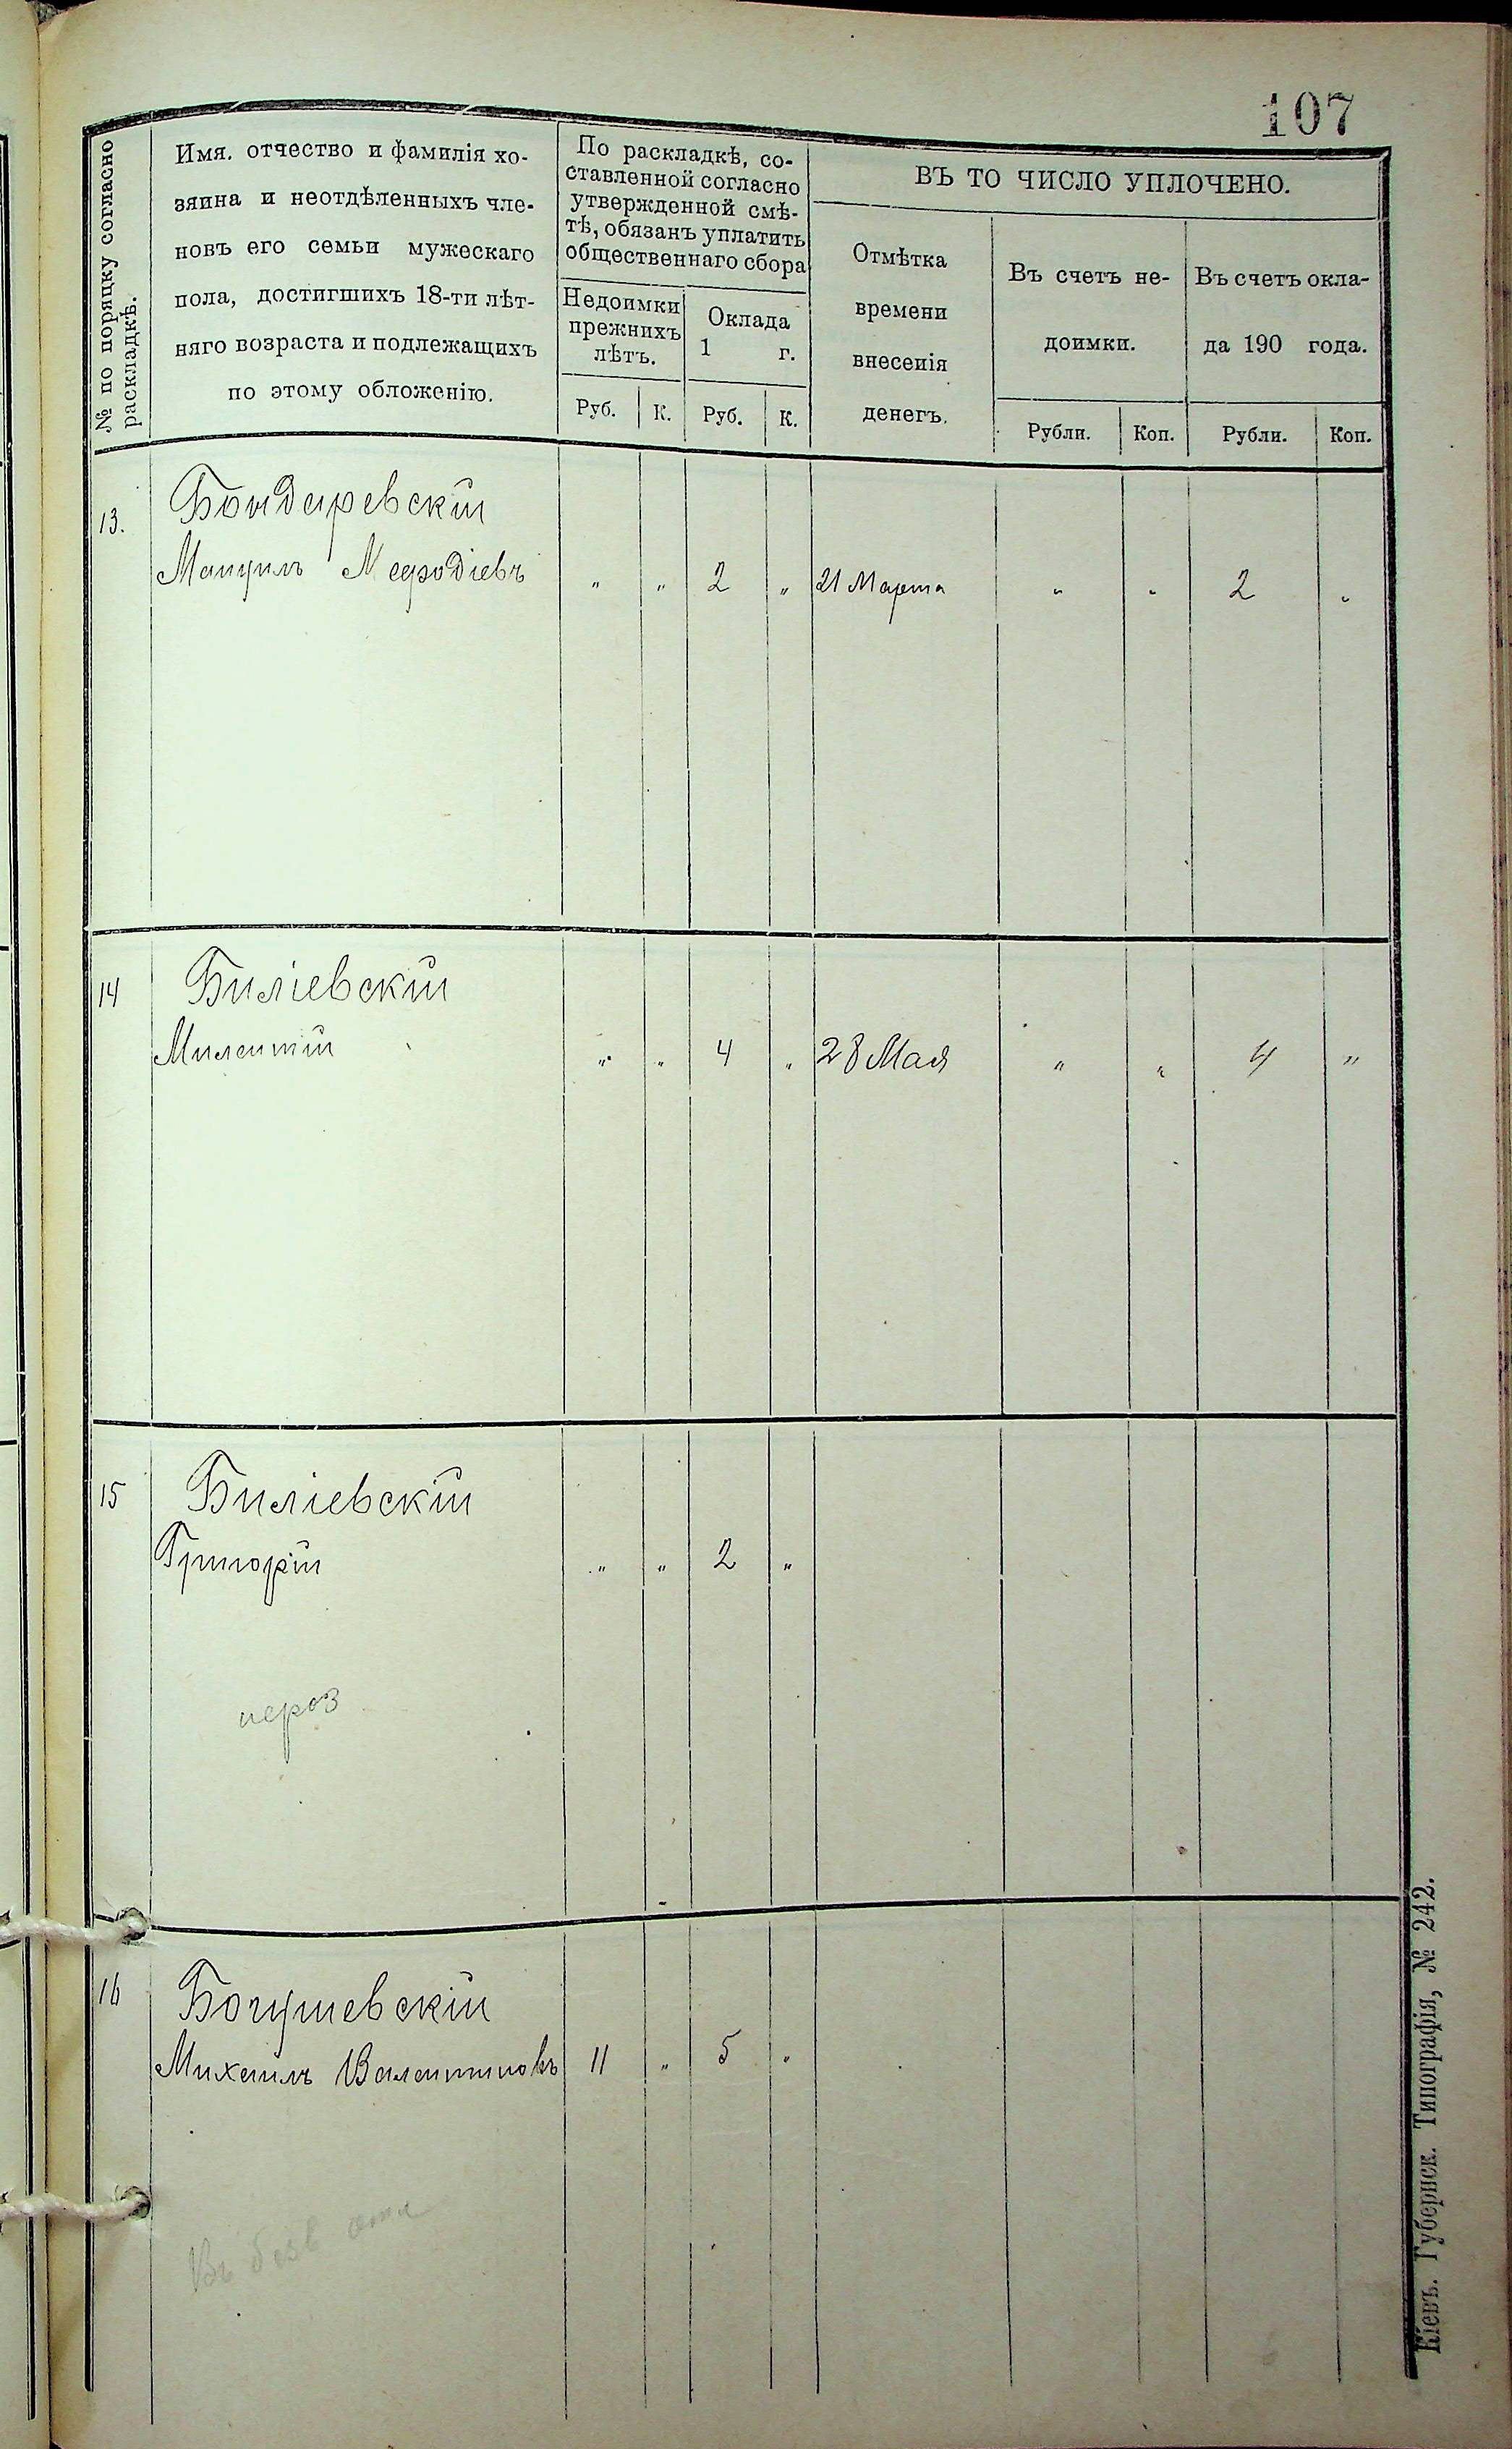 107
№ по порядку согласно
раскладкѣ.
Имя. отчество и фамилія хо-
зяина и неотдѣленныхъ чле-
новъ его семьи мужескаго
пола, достигшихъ 18-ти лѣт-
няго возраста и подлежащихъ
по этому обложенію.
По раскладкѣ, со-
ставленной согласно
утвержденной смѣ-
тѣ, обязанъ уплатить
общественнаго сбора
Недоимки
прежнихъ
лѣтъ.
Руб. К.
Оклада
1 г.
Руб. К.
ВЪ ТО ЧИСЛО УПЛОЧЕНО.
Отмѣтка
времени
внесенія
денегъ.
Въ счетъ не-
доимки.
Рубли. Коп.
Въ счетъ окла-
да 190 года.
Рубли. Коп.
13. Бондаревскій
Мефодіевъ " " 2 " 21 Марта " " 2 "
14 Биліевскій
Милентій " " 4 " 28 Мая " " 4 "
15 Биліевскій
Григорій " " 2 "
16 Богушевскій
Михаилъ Валентиновъ 11 " 5 "
Въ
Кіевъ. Губернск. Типографія, № 242.